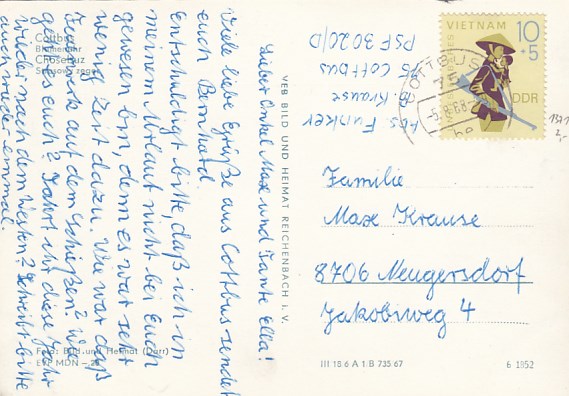 Cottbus
Blumenuhr
Chośebuz
Lieber Onkel Max und Tante Ella!
Viele liebe Grüße aus Cottbus sendet
euch Bernhard.
Entschuldigt bitte, daß ich in
meinem Urlaub nicht bei Euch
gewesen bin, denn es war sehr
wenig Zeit dazu. Wie war das
auf dem Schießen? Wie
geht es euch? Fahrt ihr diese Jahr
wieder nach dem Westen? Schreibt bitte
auch wieder einmal.
Foto: Bild und Heimat (Darr)
EVP MDN
VEB BILD UND HEIMAT REICHENBACH i. V.
Abs. Funker
B. Krause
75 Cottbus
PSF 3020/D
VIETNAM
10
+5
DDR
COTTBUS
75
1371
2,-
Familie
Max Krause
8706 Neugersdorf
Jakobsweg 4
III 18 6 A 1 B 735/67
6 1852